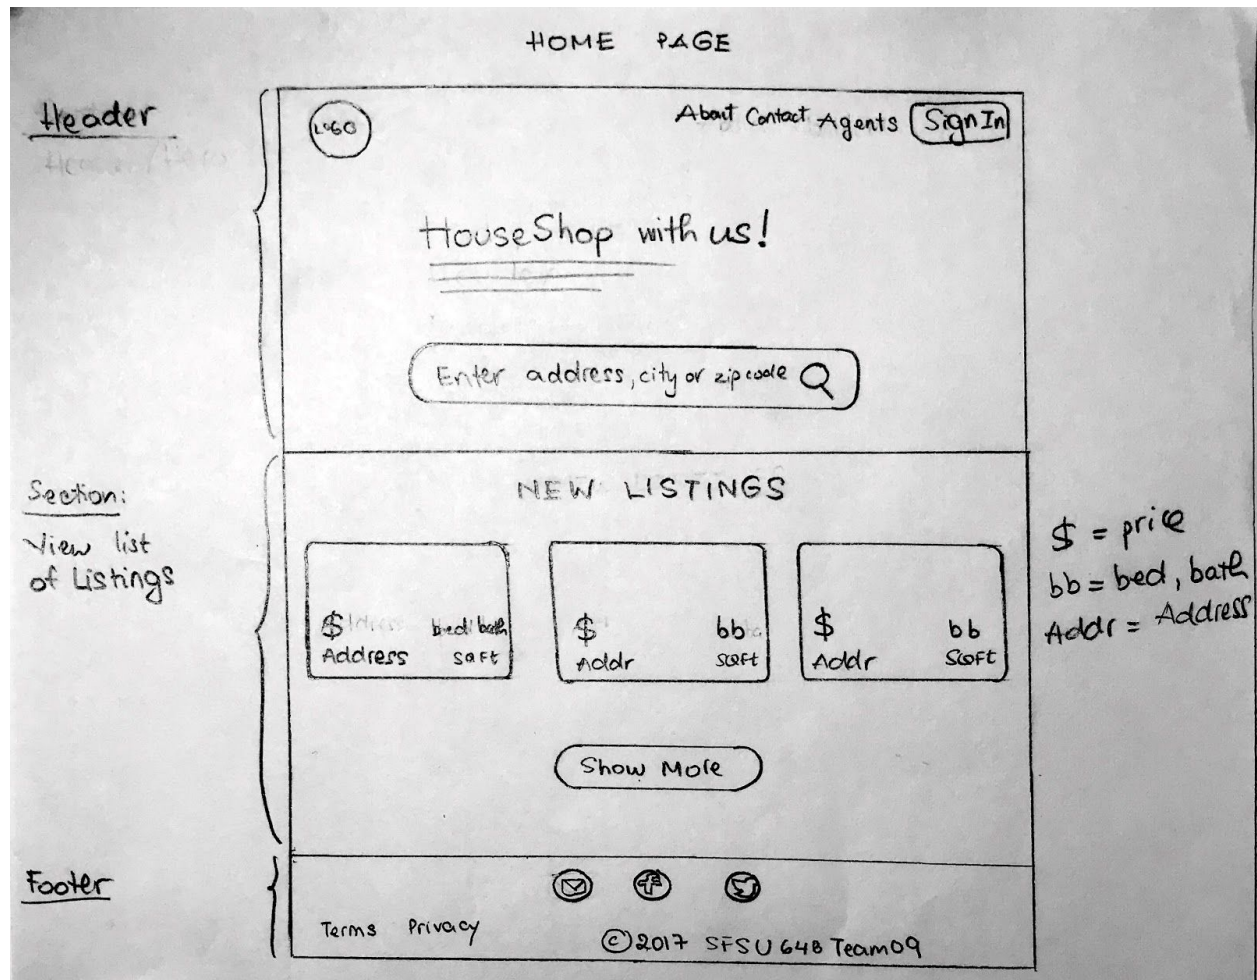 HOME PAGE
Header
LOGO
About Contact Agents Sign In
HouseShop with us!
Enter address, city or zip code
Section:
View list
of Listings
NEW LISTINGS
$ bed/bath
Address SQFT
$ bb
Addr SQFT
$ bb
Addr SQFT
$ = price
bb = bed, bath
Addr = Address
Show More
Footer
Terms Privacy
© 2017 SFSU 648 Team09